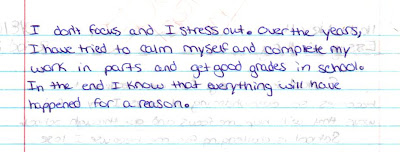 I don't focus and I stress out. Over the years,
I have tried to calm myself and complete my
work in parts and get good grades in school.
In the end I know that everything will have
happened for a reason.